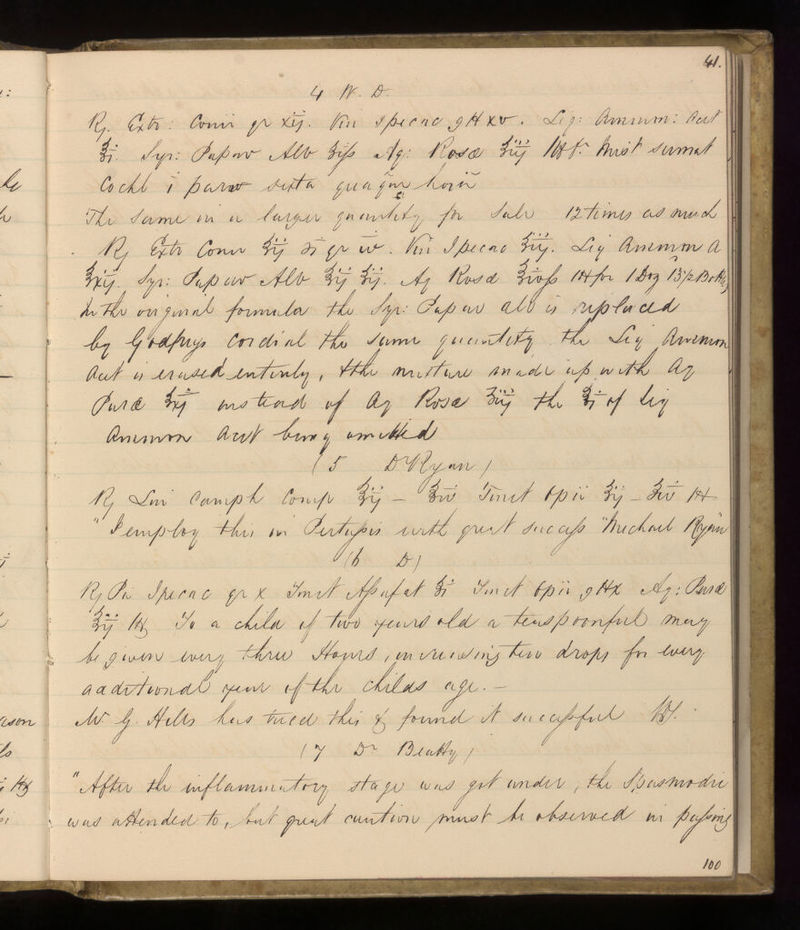 41.
4 W. D.
Rj. Extr: Conii gr xij. Vin Ipecac gtt xv. Liq: Ammon: Acet
ʒi. Syr: Papav Alb ʒiſs Aq: Rosæ ℥iij M ft Mist sumat
Cochl i parv sexta quaque hora
The same in a larger quantity for sale 12 times as much
Rj Extr Conii ʒij gr iv. Vin Ipecac ʒiij. Liq Ammon A
℥xij. Syr: Papav Alb Aq Rosæ M for 1 Doz 1 3/2 Bottles
In the original formula the Syr: Papav alb is replaced
by Godfreys Cordial the same quantity the Liq Ammon
Acet is erased entirely, & the mixture made up with Aq
Puræ instead of Aq Rosæ ℥iij the ʒi of Liq
Ammon Acet being omitted
(5 Dr Ryan)
Rj Lini Camph Comp ʒij – ʒiv Tinct Opii ʒij – ʒiv M
"I employ this in Pertussis with great succeſs "Michael Ryan"
(6 D)
Rj Pu Ipecac gr x Tinct Aſsafæt ʒi Tinct Opii gtt x Aq: Puræ
℥ij M To a child of two years old a teaspoonful may
be given every three Hours, increasing two drops for every
additional year of the childs age. –
Mr G. Hills has tried this & found it succeſsful
(7 Dr Beatty)
"After the inflammatory stage was got under, the Spasmodic
was attended to, but great caution must be observed in paſsing
100
ason